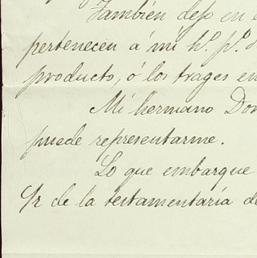 También dejo en
pertenecen á mi hº. pº.
producto, ó los trages en
Mi hermano Don
puede representarme.
Lo que embarque
S/r de la testamentaría de